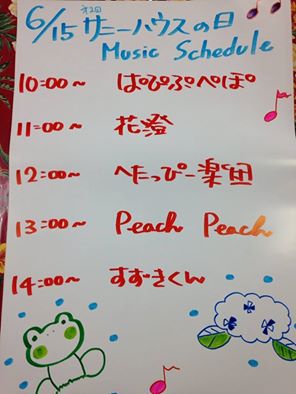 6/15 第2回 サニーハウスの日
Music Schedule
10:00〜 ぱぴぷぺぽ
11:00〜 花澄
12:00〜 へたっぴー楽団
13:00〜 Peach Peach
14:00〜 すずきくん